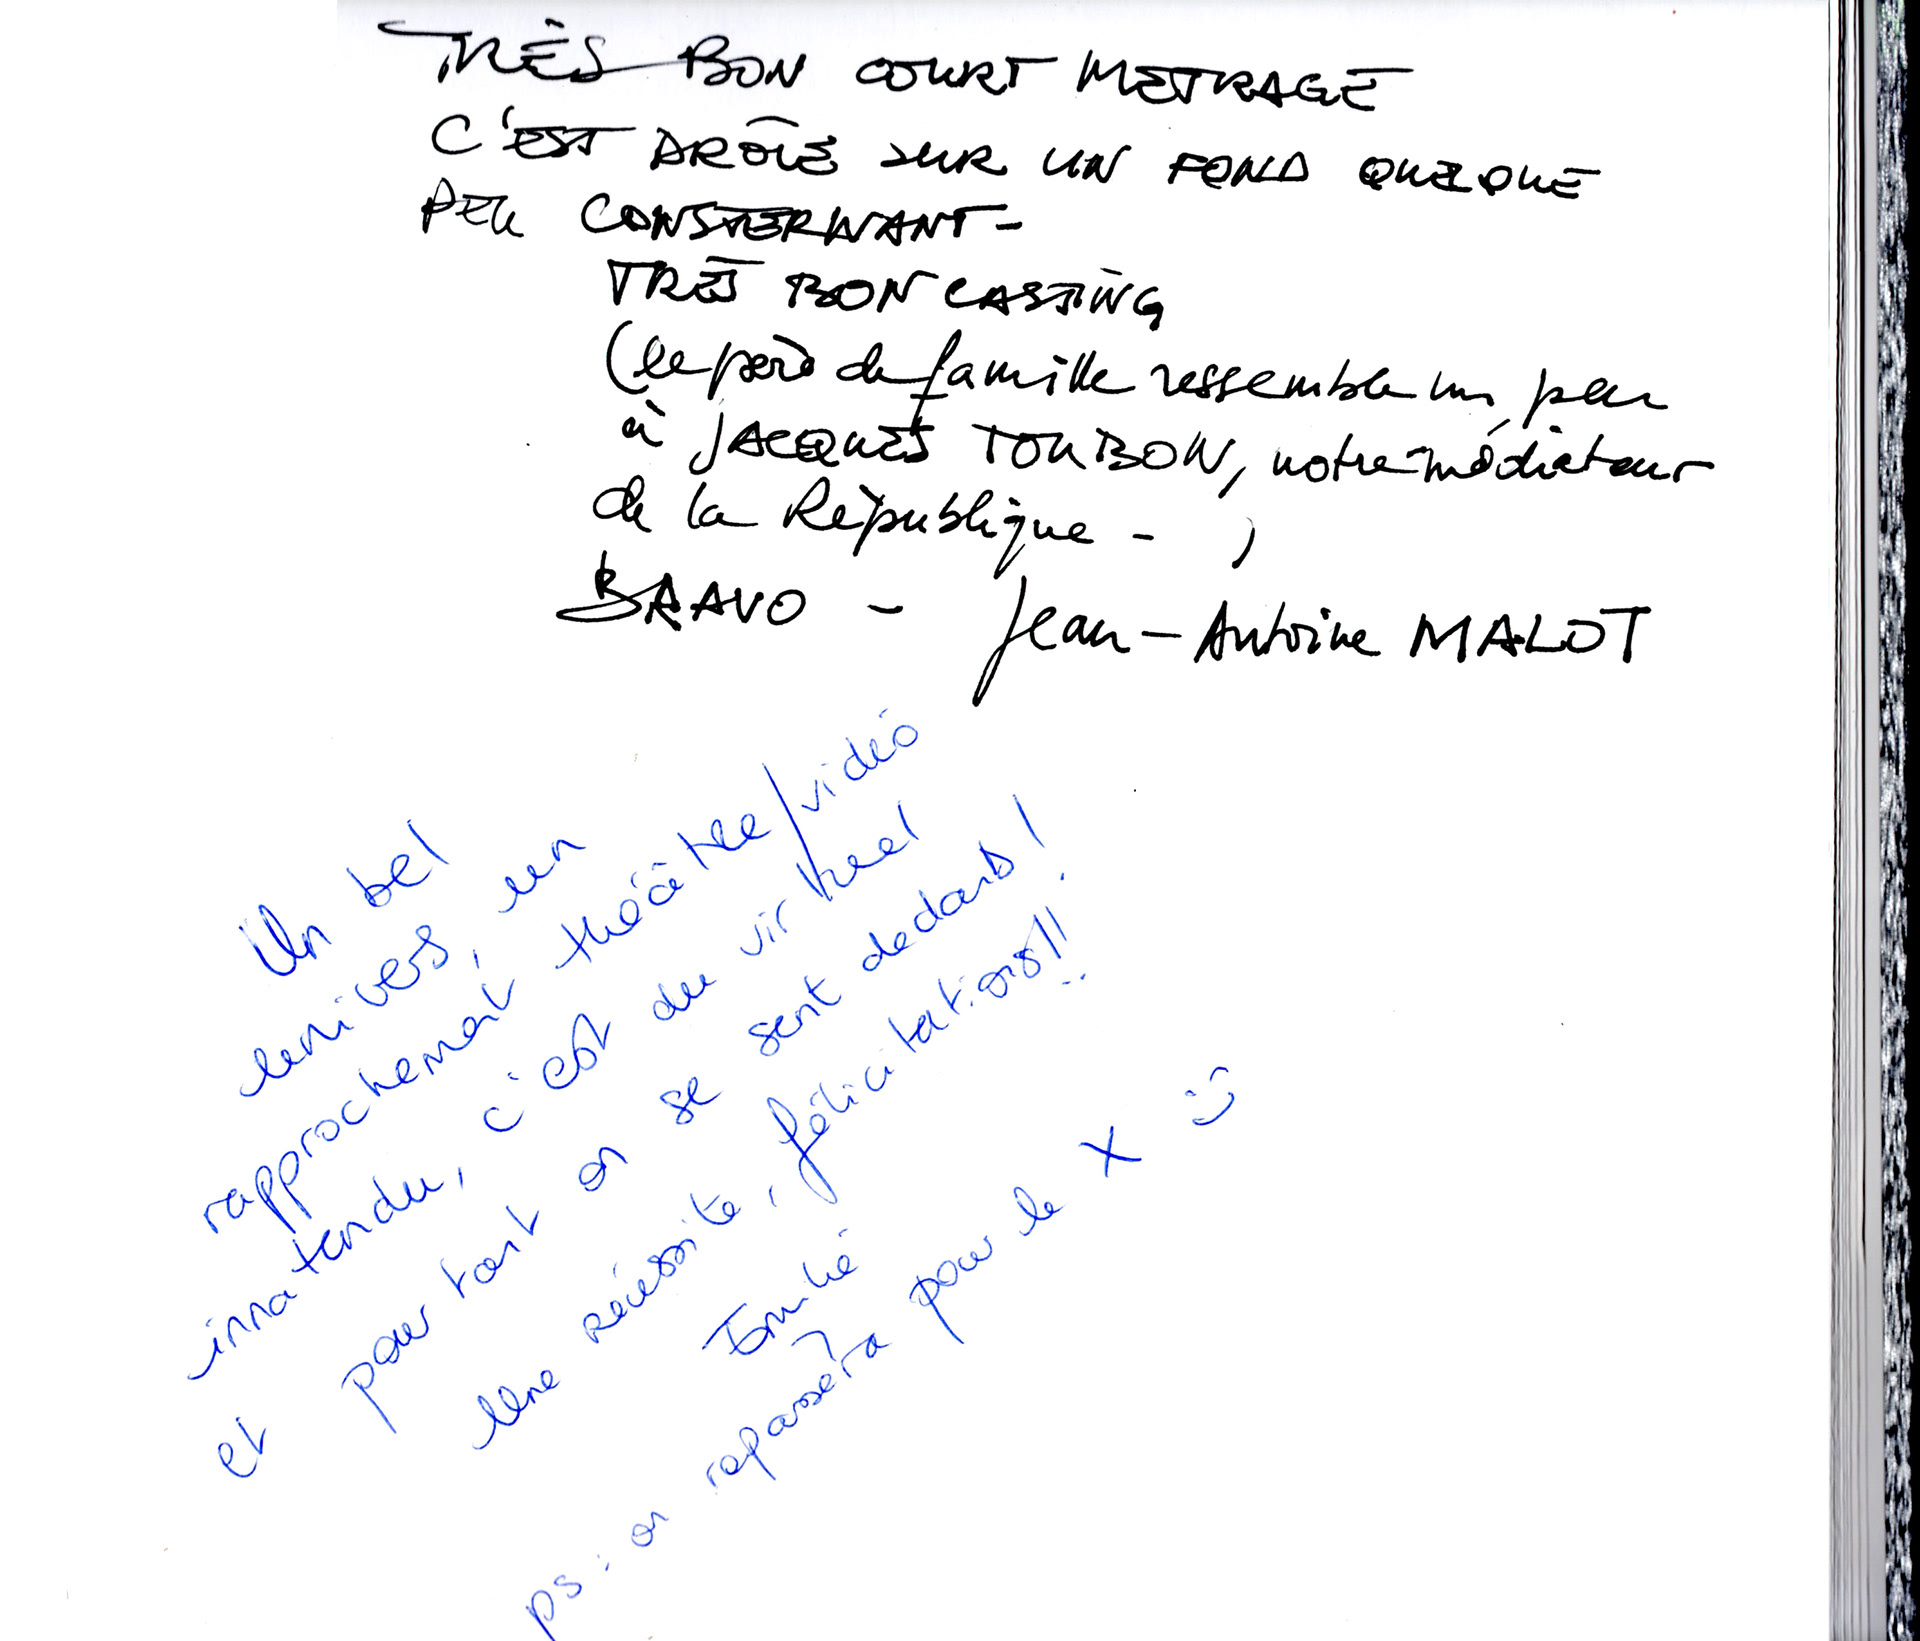 TRÈS BON COURT METRAGE
C'EST DRÔLE SUR UN FOND QUELQUE
PEU CONSTERNANT -
TRÈS BON CASTING
(le père de famille ressemble un peu
à JACQUES TOUBON, notre médiateur
de la République - )
BRAVO - Jean-Antoine MALOT
Un bel
univers, un
rapprochement théâtre/vidéo
innatendu, c'est du virtuel
et pourtant on se sent dedans!
Une réussite, félicitations!!
Emilie
ps: on repassera pour le X :)